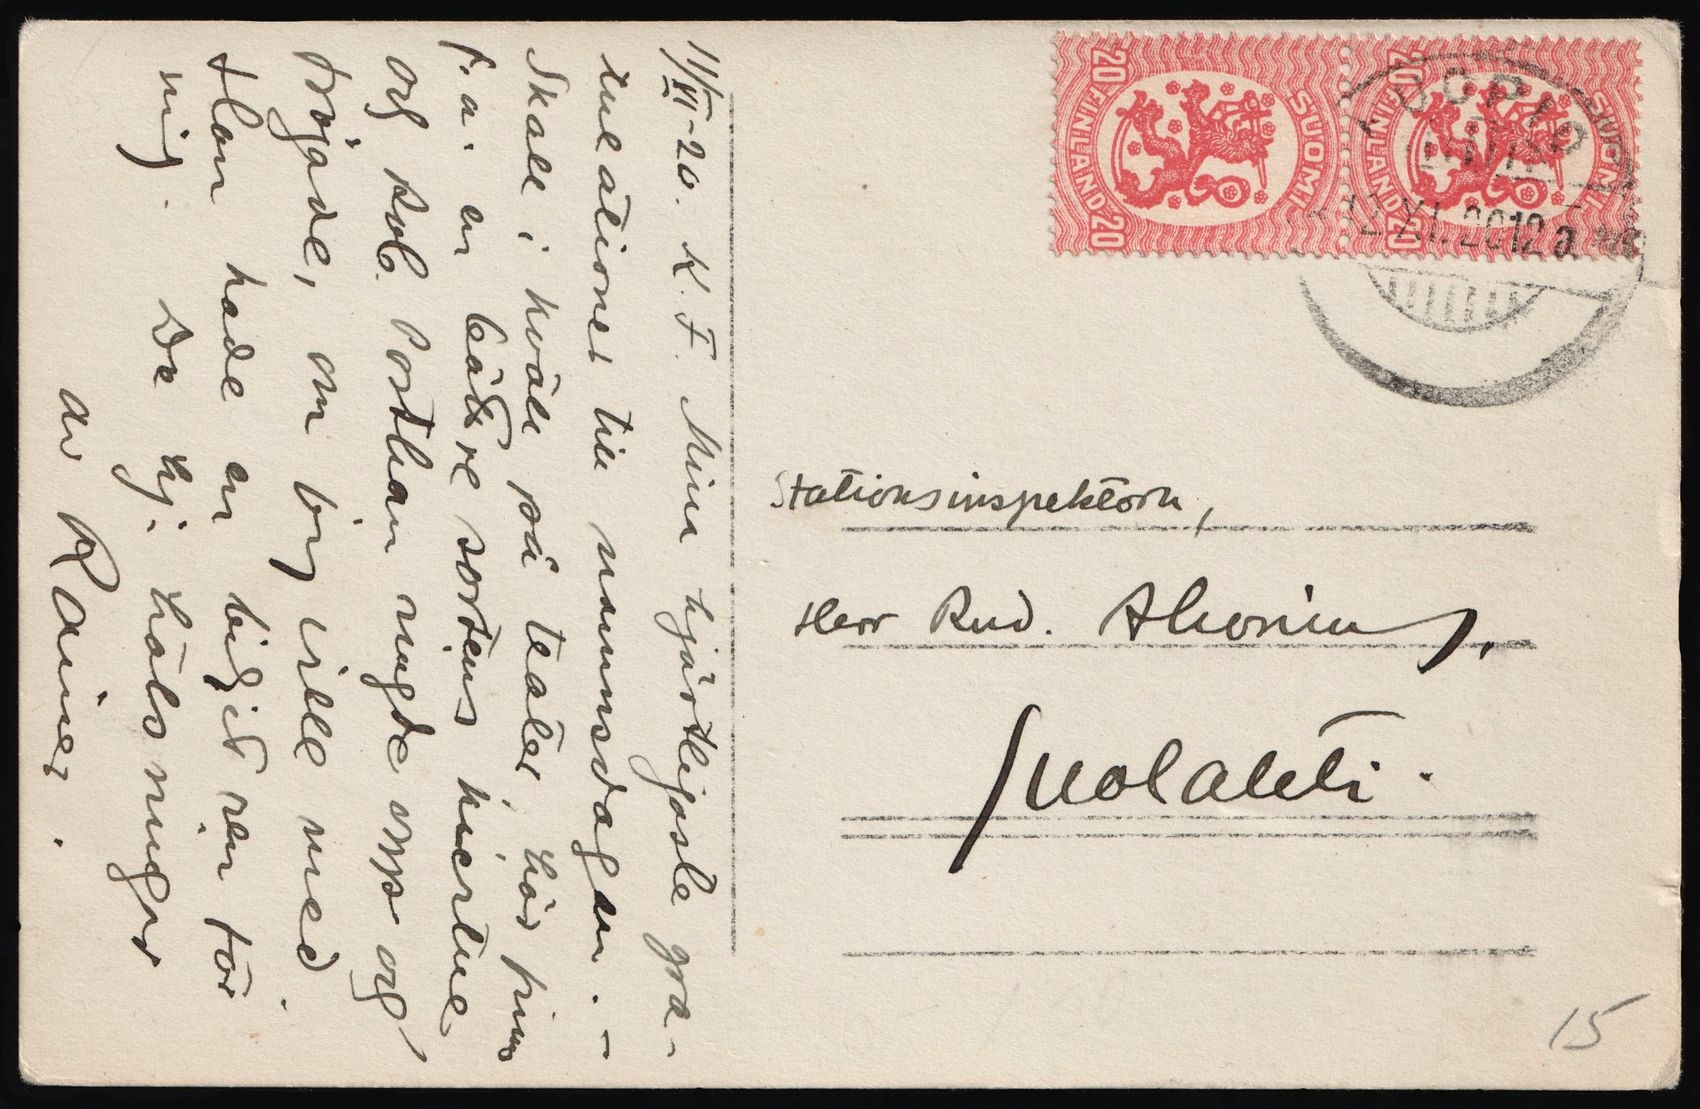 11/XI-20. K. F. Mina hjärtligaste gra-
tulationer till namnsdagen. –
Skall i kväll på teater, här finns
f.a. en bättre sortens
och rob. Porthan ringde opp och
frågade, om jag ville med.
Han hade en biljett ren för
mig. De hj. hälsningar
av Rainer.
SUOMI FINLAND 20 20
SUOMI FINLAND 20 20
KUOPIO
12.XI.20 12
Stationsinspektorn,
Herr Rud. Ahonius,
Suolahti.
15